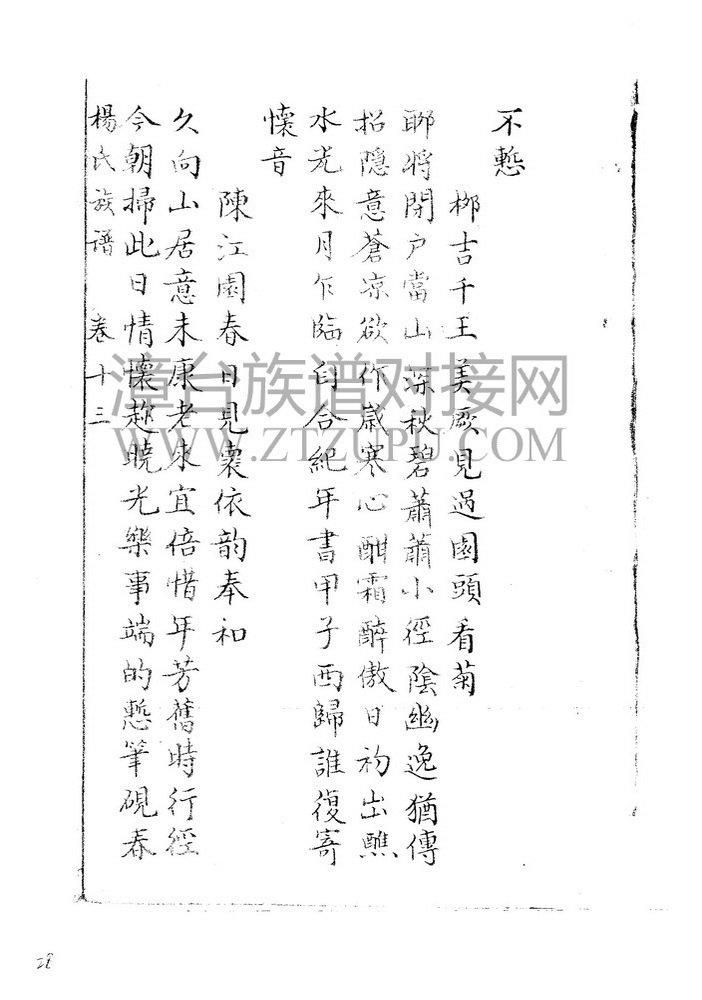 不慙
柳吉千王美厥見過園頭看菊
聊將閉户當山深秋碧蕭蕭小徑陰幽逸猶傳
招隱意蒼凉欲作歲寒心酣霜醉傲日初出醮
水光來月乍臨自合紀年書甲子西歸誰復寄
懷音
陳江園春日見懷依韵奉和
久向山居意未康老來宜倍惜年芳舊時行徑
今朝掃此日情懷趂曉光樂事端的慙筆硯春
楊氏族谱 卷十三
漳台族谱对接网
WWW.ZTZUPU.COM
28